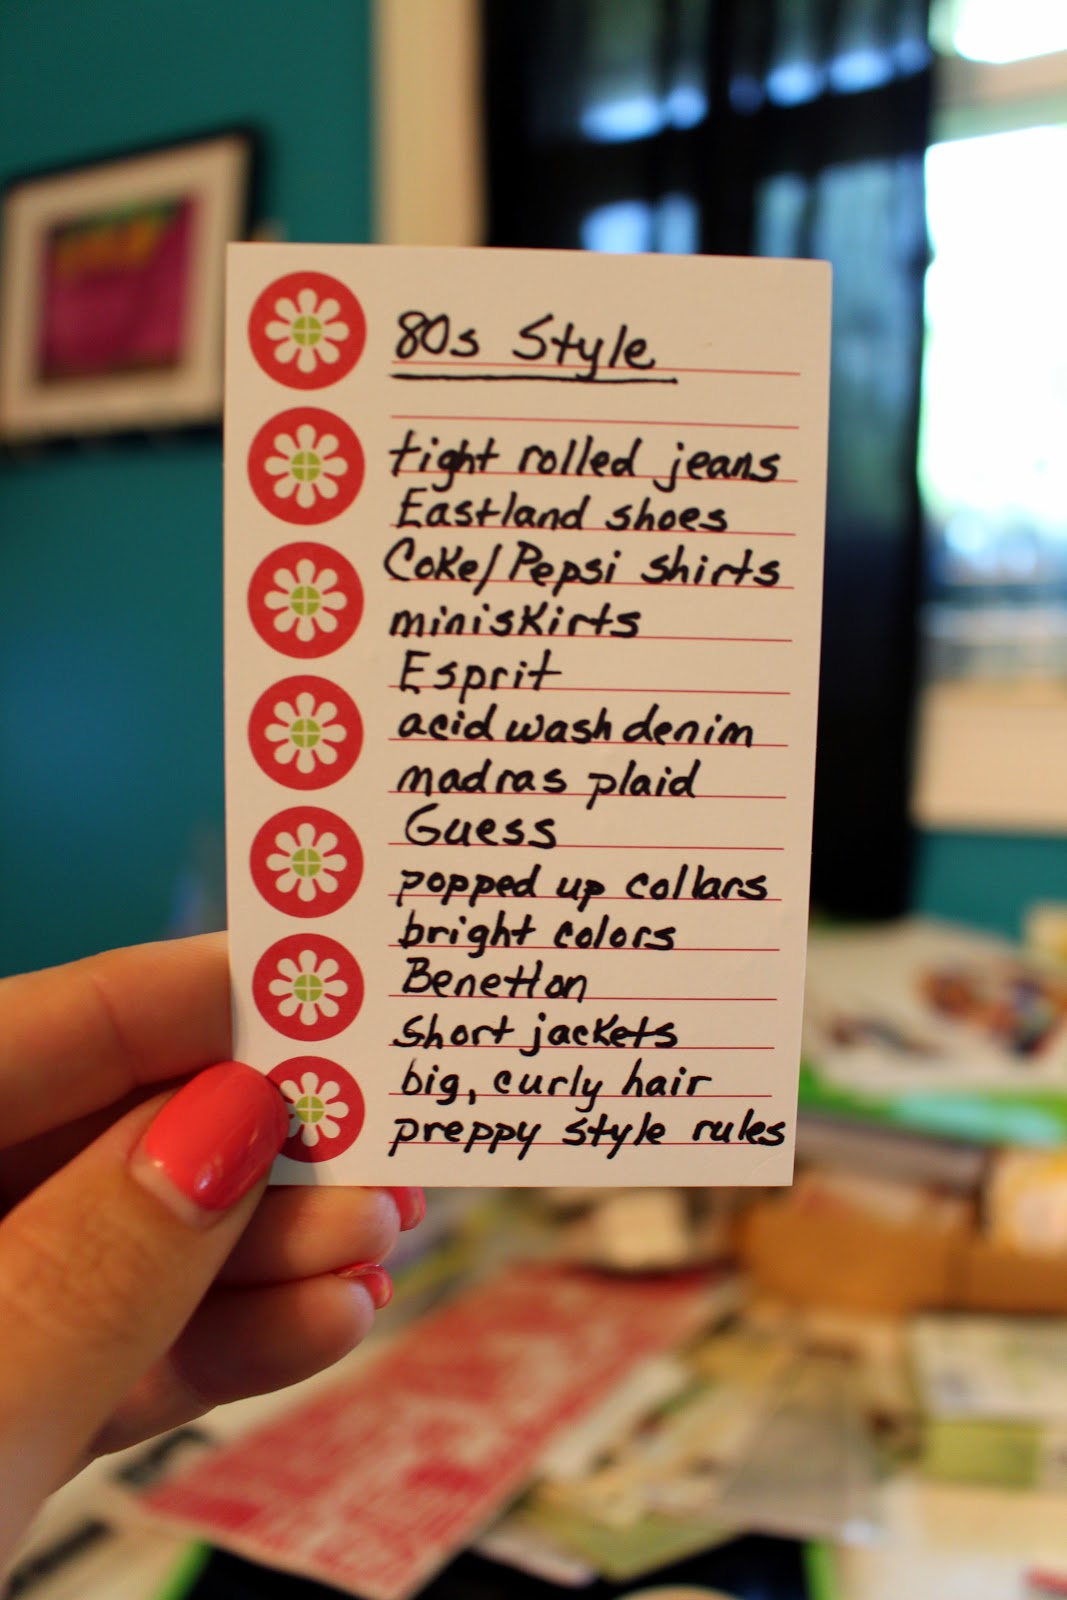 80s Style
tight rolled jeans
Eastland shoes
Coke/Pepsi shirts
miniskirts
Esprit
acid wash denim
madras plaid
Guess
popped up collars
bright colors
Benetton
short jackets
big, curly hair
preppy style rules